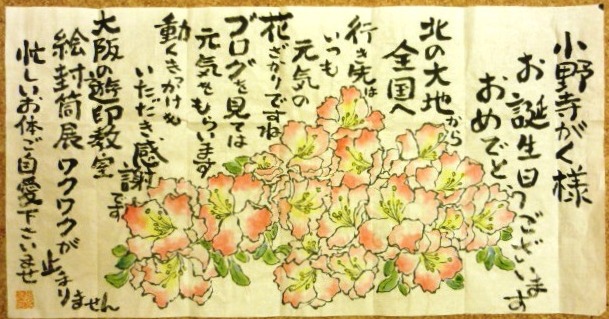 小野寺がく様
お誕生日
おめでとうございます
北の大地から
全国へ
行き先は
いつも
元気の
花ざかりですね
ブログを見ては
元気をもらいます
動くきっかけを
いただき、感謝です
大阪の遊印教室
絵封筒展ワクワクが
止まりません
忙しいお体ご自愛下さいませ